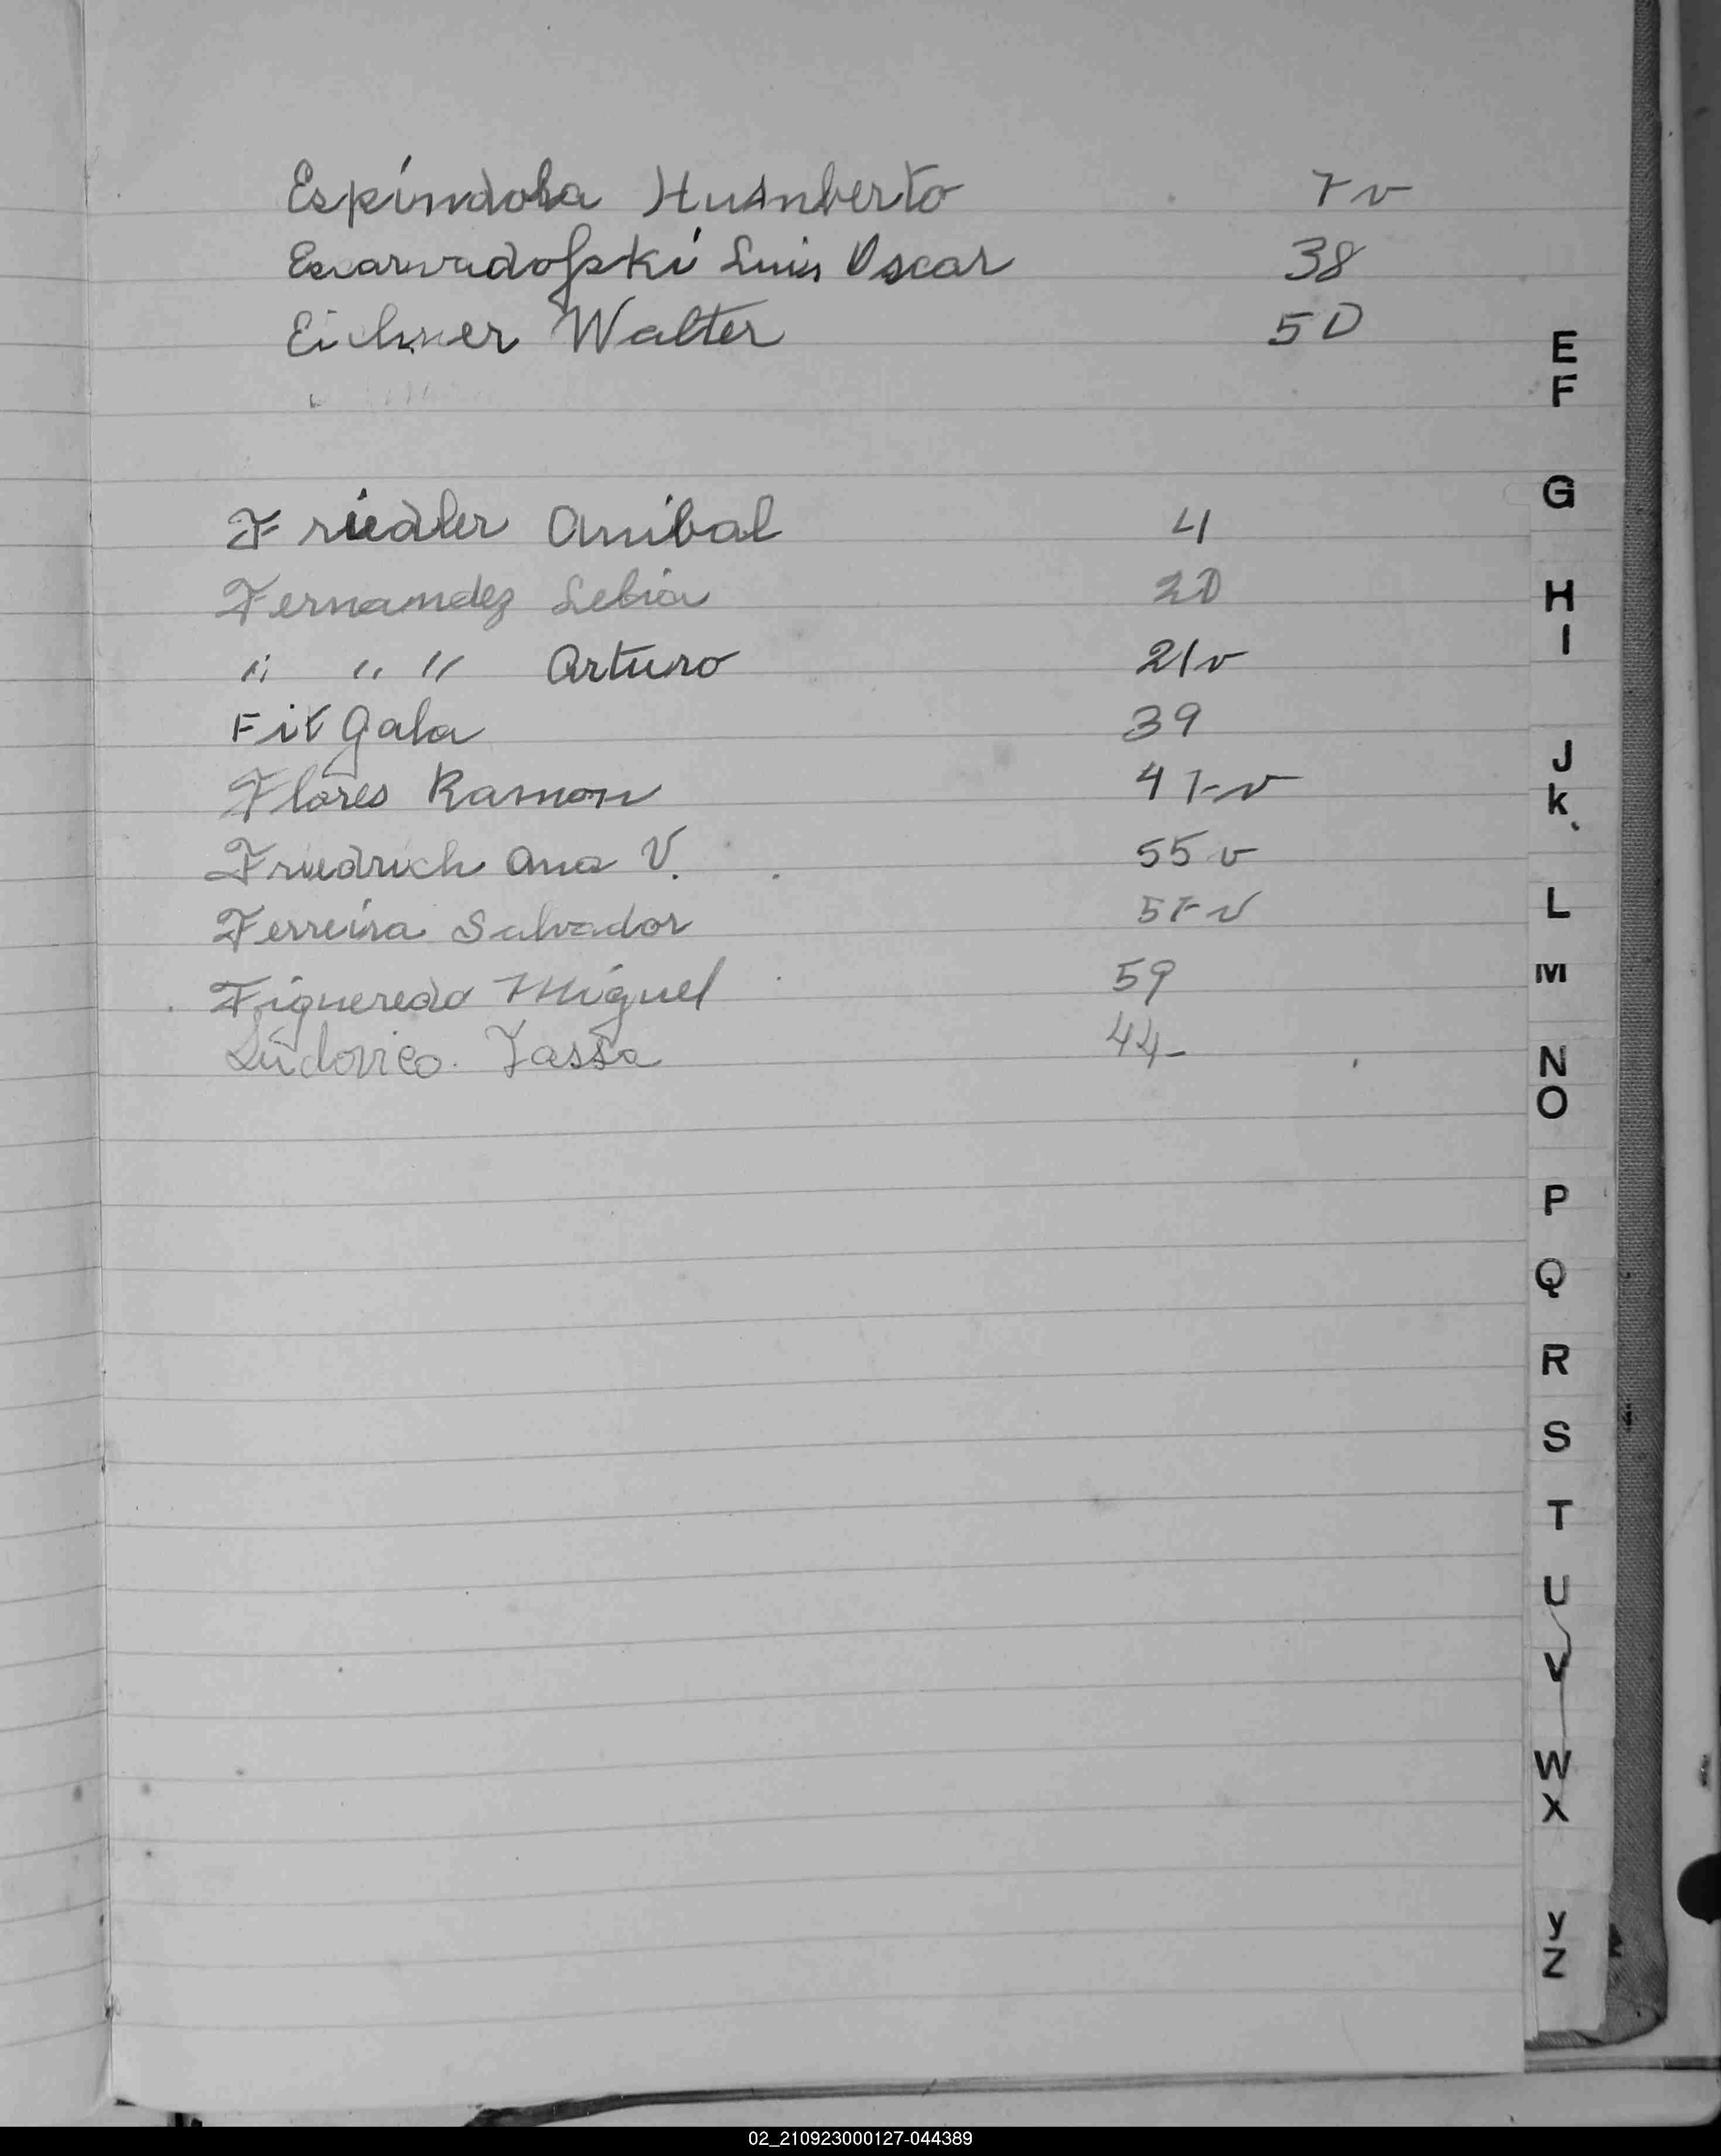 Espíndola Humberto 7v
Luis Oscar 38
Eichner Walter 50
Friedler Anibal 4
Fernandez Lebia 20
" " " Arturo 21v
Fit Gala 39
Flores Ramon 47-v
Friedrich Ana V. 55v
Ferreira Salvador 57-v
Figueredo Miguel 59
Ludovico. Tassa 44-
E
F
G
H
I
J
K
L
M
N
O
P
Q
R
S
T
U
V
W
X
y
Z
02_210923000127-044389